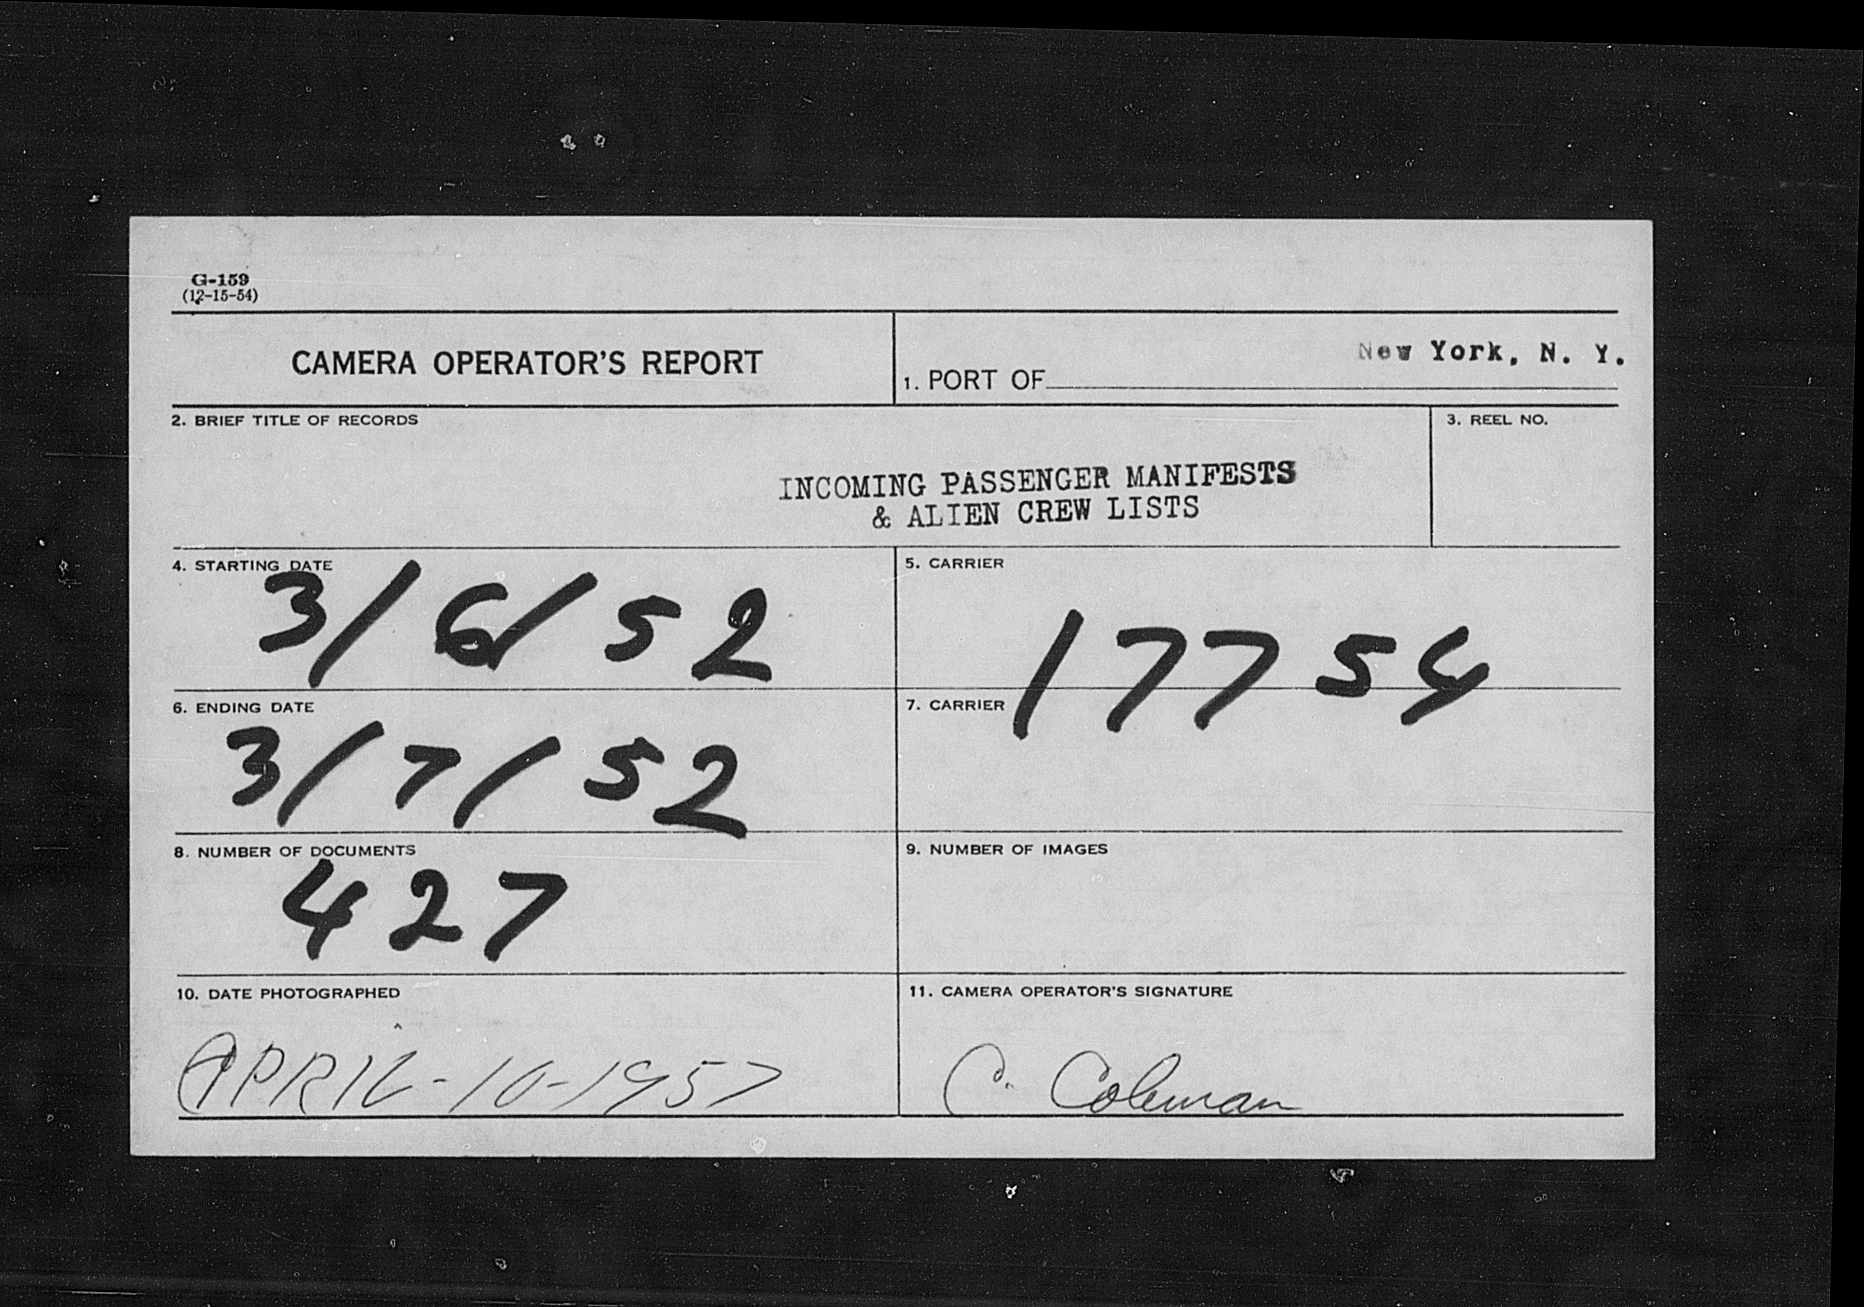 G-159
(12-15-54)
CAMERA OPERATOR'S REPORT
1. PORT OF New York, N. Y.
2. BRIEF TITLE OF RECORDS
3. REEL NO.
INCOMING PASSENGER MANIFESTS
& ALIEN CREW LISTS
4. STARTING DATE
3/6/52
5. CARRIER
17754
6. ENDING DATE
3/7/52
7. CARRIER
8. NUMBER OF DOCUMENTS
427
9. NUMBER OF IMAGES
10. DATE PHOTOGRAPHED
APRIL-10-1957
11. CAMERA OPERATOR'S SIGNATURE
C. Coleman